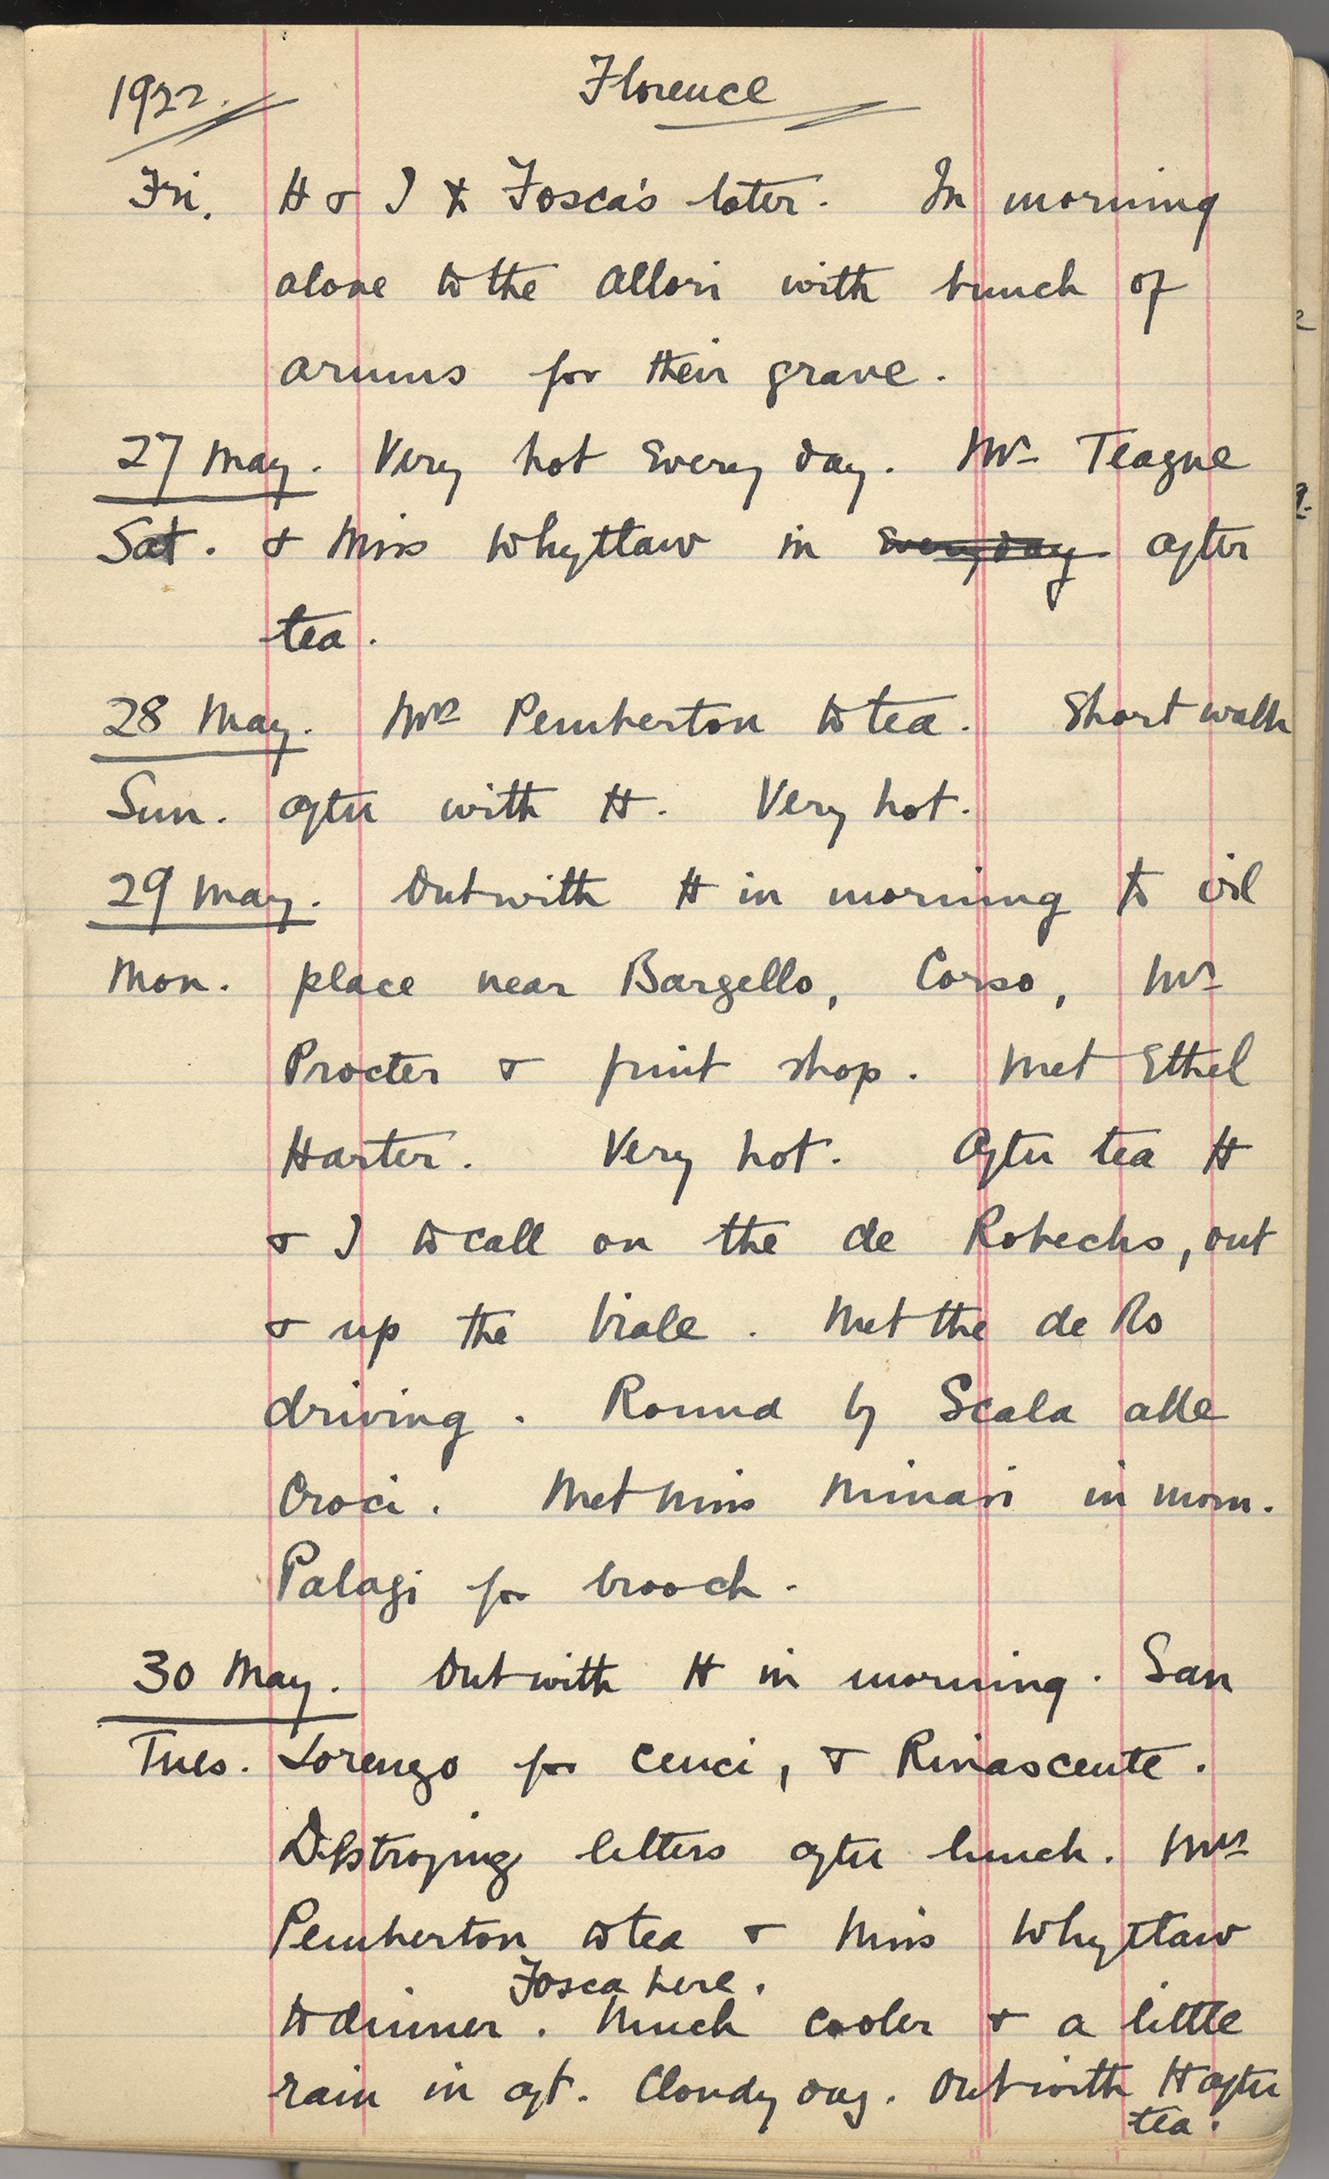 1922. Florence
Fri. H & I to Fosca's later. In morning
alone to the Allori with bunch of
arums for their grave.
27 May. Very hot every day. Mrs Teague
Sat. & Miss Whyttaw in everyday after
tea.
28 May. Mrs Pemberton to tea. Short walk
Sun. after with H. Very hot.
29 May. Out with H in morning to oil
Mon. place near Bargello, Corso, Mrs
Procter & fruit shop. Met Ethel
Harter. Very hot. After tea H
& I to call on the de Robecks, out
& up the Viale. Met the de Rs
driving. Round by Scala alle
Croci. Met Miss Minari in morn.
Palagi for brooch.
30 May. Out with H in morning. San
Tues. Lorenzo for cenci, & Rinascente.
Destroying letters after lunch. Mrs
Pemberton to tea & Miss Whyttaw
Fosca here.
to dinner. Much cooler & a little
rain in aft. Cloudy day. Out with H after
tea.